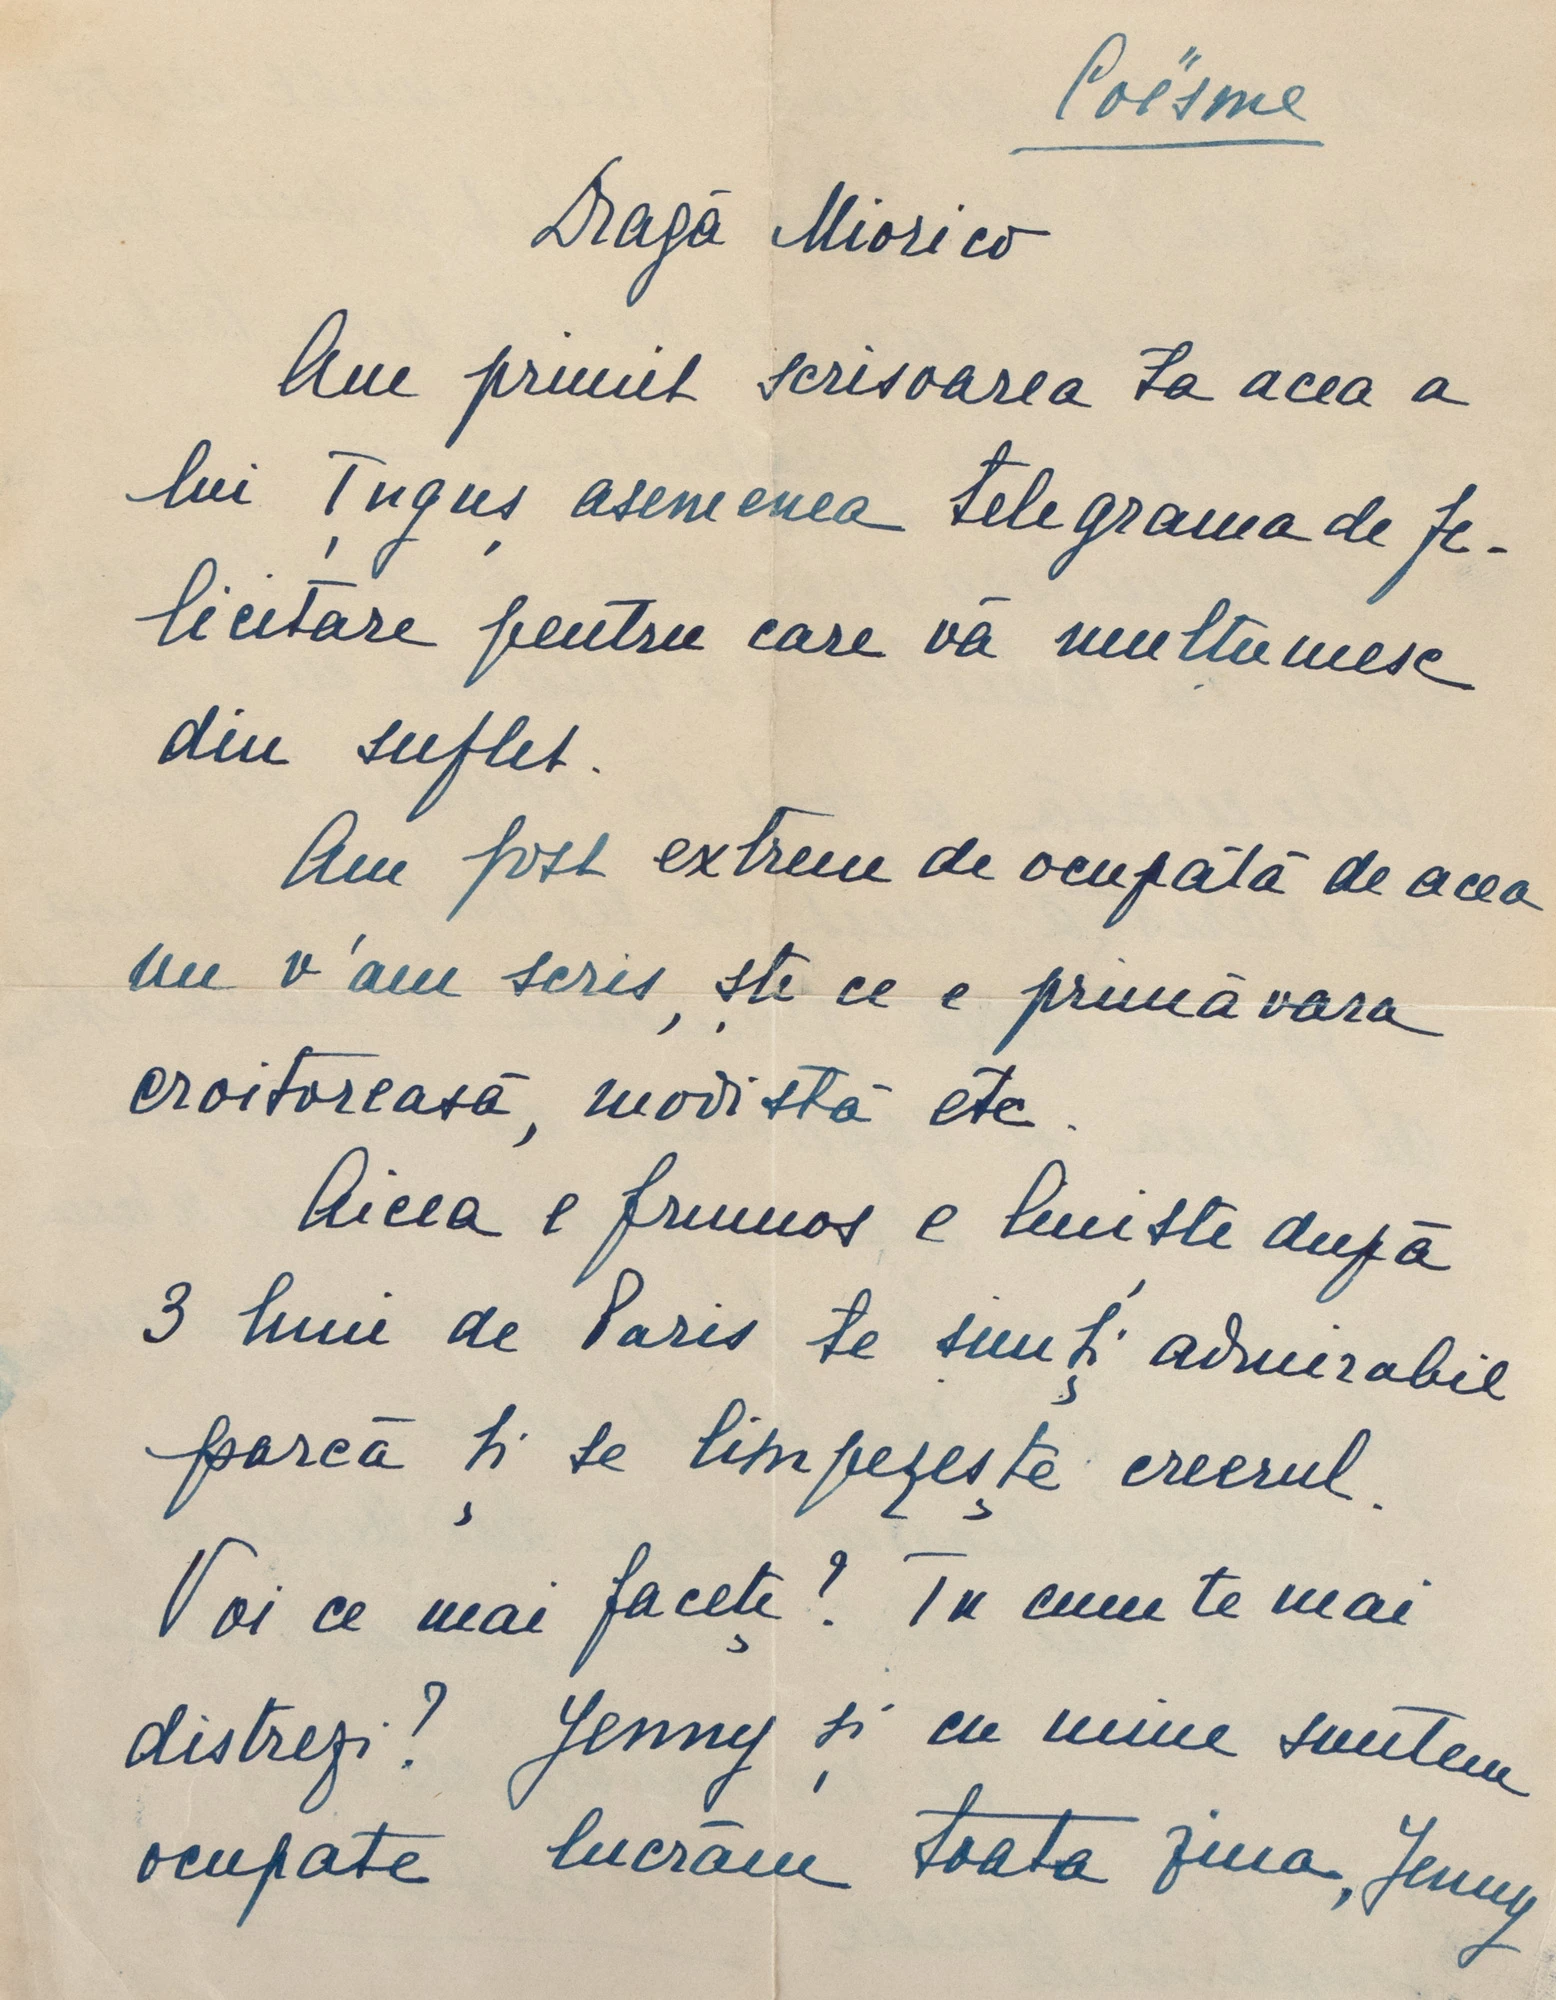 Coësme
Dragă Miorico
Am primit scrisoarea ta acea a
lui Țuguș asemenea telegrama de fe-
licitare pentru care vă multumesc
din suflet.
Am fost extrem de ocupată de acea
nu v'am scris, ște ce e primăvara
croitoreasă, modistă etc.
Aicea e frumos e liniște după
3 luni de Paris te simți admirabil
parcă ți se limpezește creerul.
Voi ce mai faceți? Tu cum te mai
distrezi? Jenny și cu mine suntem
ocupate lucrăm toata ziua, Jenny